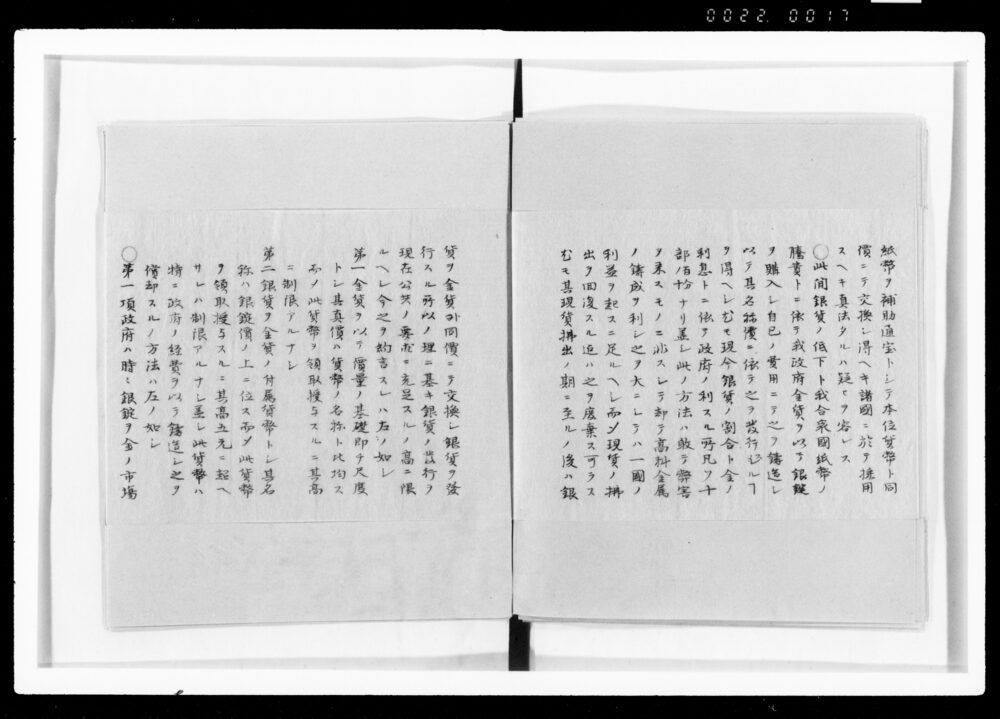 0022 0017
紙幣ヲ補助通宝トシテ本位貨幣ト同
價ニテ交換シ得ヘキ諸國ニ於テ採用
スヘキ真法タルハ疑ヲ容レス
〇此间銀貨ノ低下ト我合衆國紙幣ノ
騰貴トニ依テ我政府金貨ヲ以テ銀錠
ヲ購入シ自己ノ費用ニテ之ヲ鋳造シ
以テ其名称價ニ依テ之ヲ発行スルヿ
ヲ得ヘシ尤モ現今銀貨ノ割合ト金ノ
利息トニ依テ政府ノ利スル所凡ソ十
部百分ナリ蓋シ此ノ方法ハ敢テ幣害
ヲ来スモノニ非スシテ却テ高料金属
ノ鋳成ヲ利シ之ヲ大ニシテハ一國ノ
利益ヲ起スニ足ルヘシ而シ現貨ノ拂
出ヲ回復スル迠ハ之ヲ廃棄ス可ラス
尤モ其現貨拂出ノ期ニ至ルノ後ハ銀
貨ヲ金貨ト同價ニテ交換シ銀貨ヲ發
行スル所以ノ理ニ基キ銀貨ノ発行ヲ
現在公衆ノ需求ニ充足スルノ高ニ限
ルヘシ今之ヲ約言スレハ左ノ如シ
第一金貨ヲ以テ價量ノ基礎即チ尺度
トシ其真價ハ貨幣ノ名称ト比均ス
而ノ此貨幣ヲ領取授与スルニ其高
ニ制限アルナシ
第二銀貨ヲ金貨ノ付属貨幣トシ其名
称ハ銀錠價ノ上ニ位ス而シ此貨幣
ヲ領取授与スルニ其高五元ニ超ヘ
サレハ制限アルナシ蓋シ此貨幣ハ
特ニ政府ノ経費ヲ以テ鋳造シ之ヲ
償却スルノ方法ハ左ノ如シ
〇第一項政府ハ時々銀錠ヲ金ノ市場